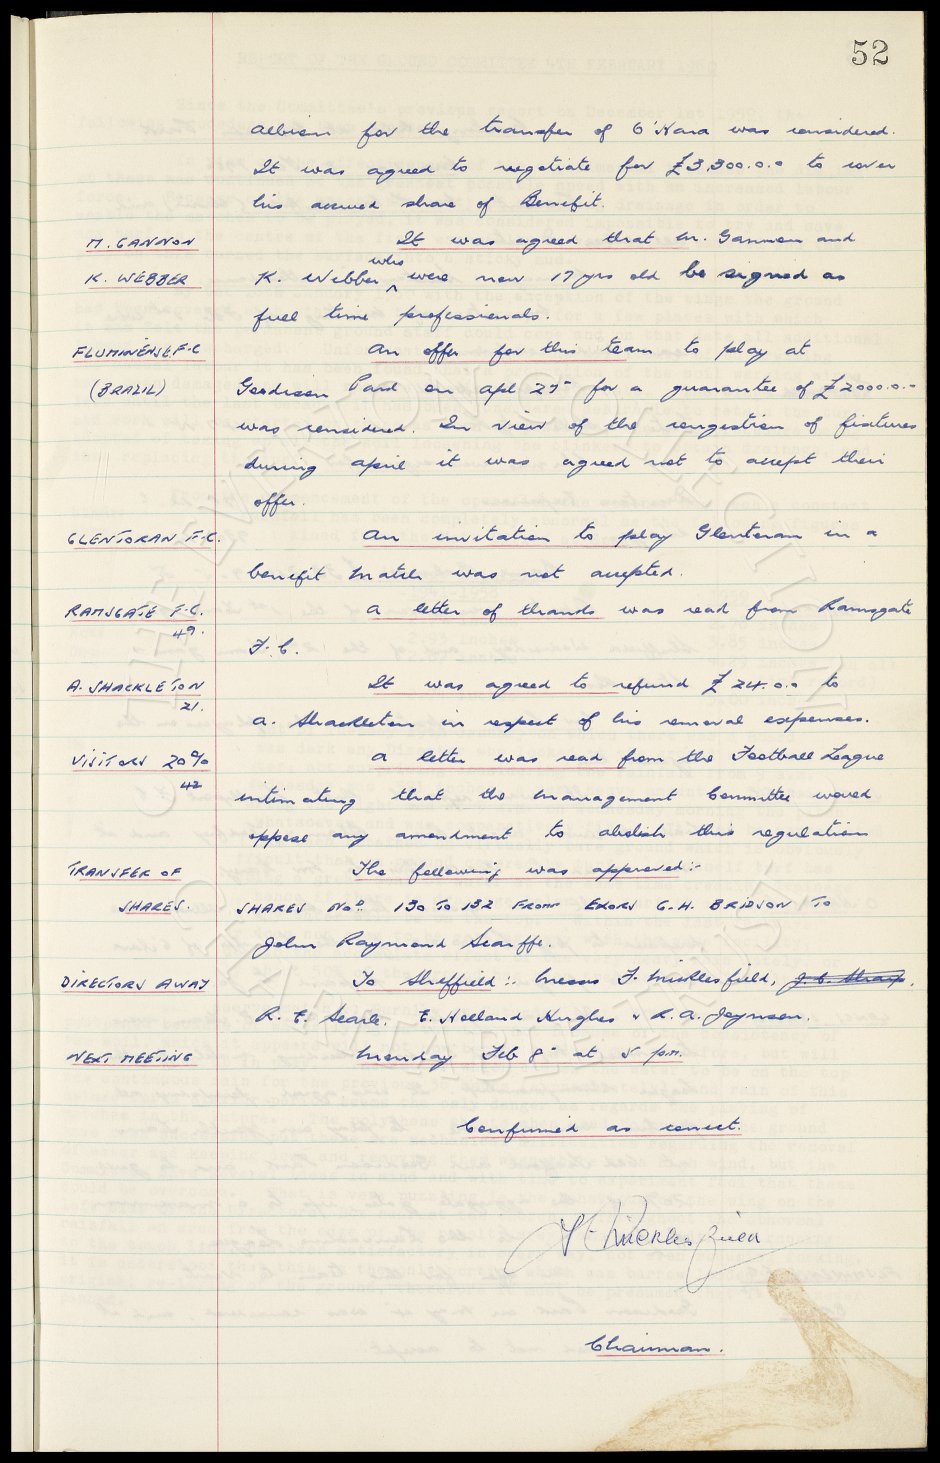 52
Albion for the transfer of O'Hara was considered.
It was agreed to negotiate for £3,300.0.0 to cover
his accrued share of Benefit.
M. GANNON It was agreed that M. Gannon and
K. WEBBER K. Webber who were now 17 yrs old be signed as
full time professionals.
FLUMINENSE F.C An offer for this team to play at
(BRAZIL) Goodison Park on Apl 25th for a guarantee of £2000.0.0
was considered. In view of the congestion of fixtures
during April it was agreed not to accept their
offer.
GLENTORAN F.C. An invitation to play Glentoran in a
benefit match was not accepted.
RAMSGATE F.C. A letter of thanks was read from Ramsgate
49. F.C.
A. SHACKLETON It was agreed to refund £24.0.0 to
21. A. Shackleton in respect of his removal expenses.
VISITORS 20% A letter was read from the Football League
42 intimating that the Management Committee would
oppose any amendment to abolish this regulation
TRANSFER OF The following was approved:-
SHARES. SHARES NOS. 130 TO 132 FROM EXORS G.H. BRIDSON TO
John Raymond Scarffe.
DIRECTORS AWAY To Sheffield:- Messrs F. Micklesfield, J.C. Sharp.
R.E. Searle. E. Holland Hughes & R.A. Joynson.
NEXT MEETING Monday Feb 8th at 5 p.m.
Confirmed as correct.
F E Micklesfield
Chairman.
THE EVERTON COLLECTION
CHARITABLE TRUST